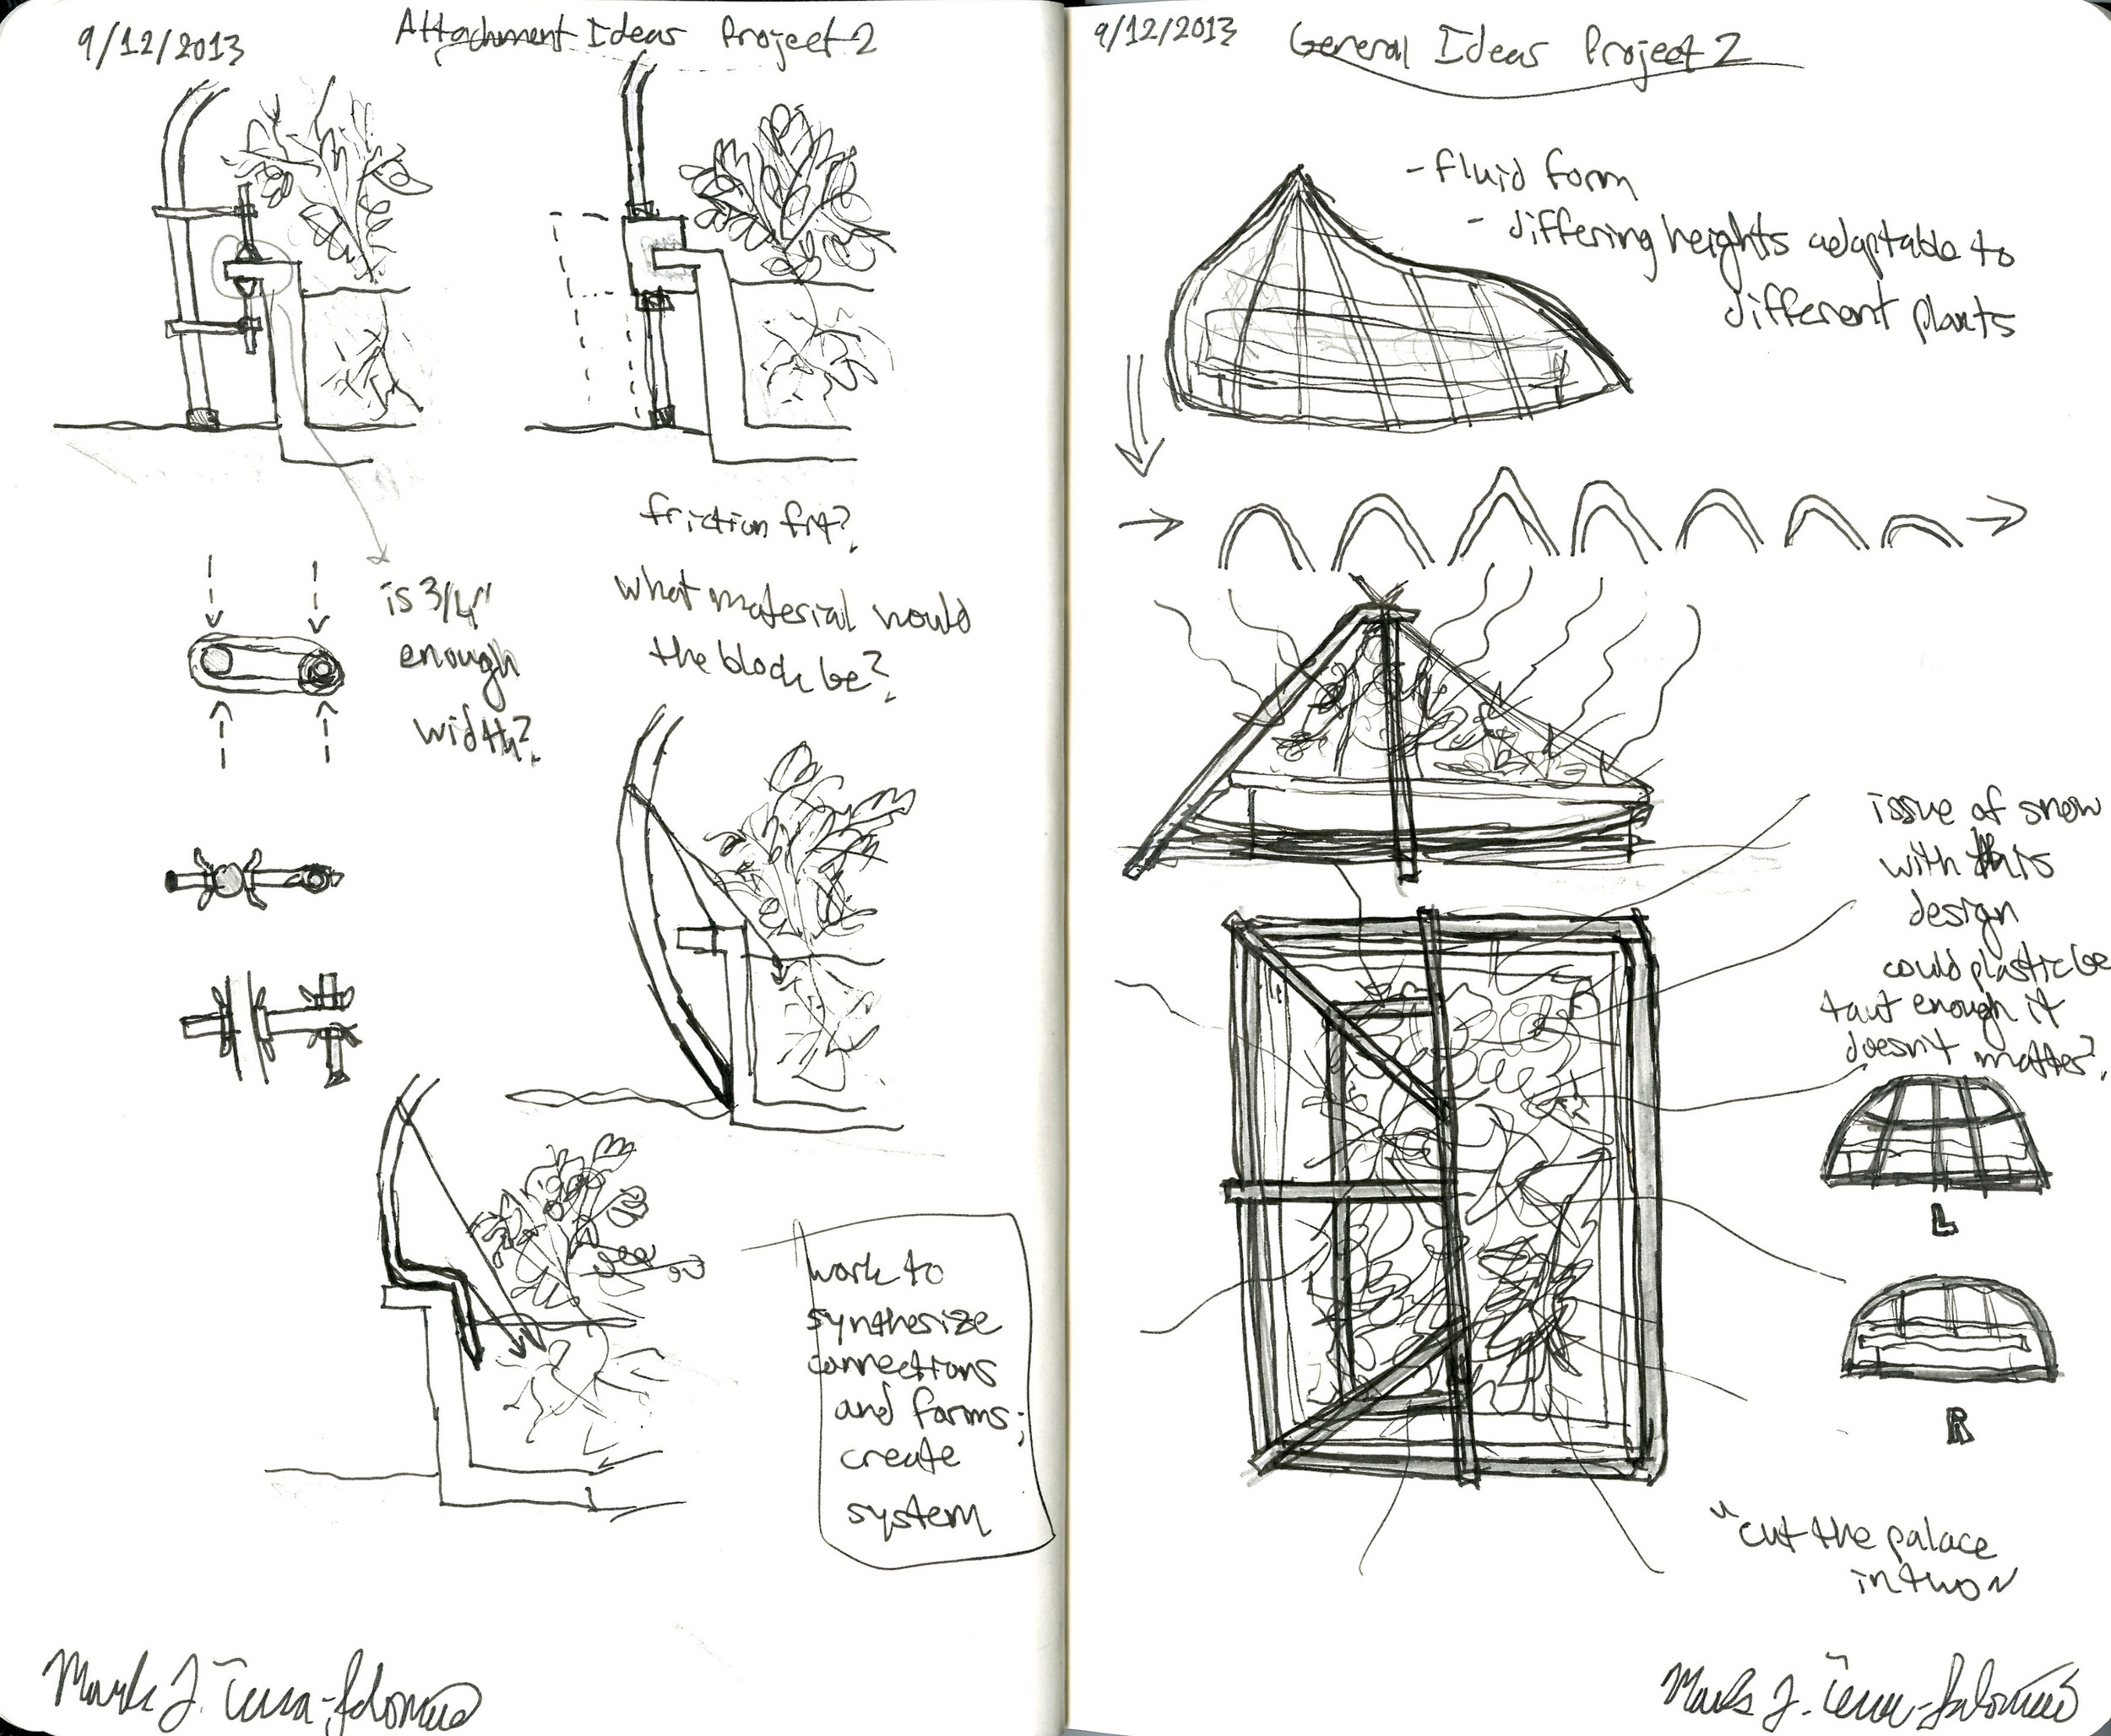 9/12/2013
Attachment Ideas Project 2
friction fit?
what material would
the block be?
is 3/4"
enough
width?
work to
synthesize
connections
and forms;
create
system
Mark J.
9/12/2013
General Ideas Project 2
- fluid form
- differing heights adaptable to
different plants
issue of snow
with this
design
could plastic be
taut enough it
doesn't matter?
L
R
"cut the palace
in two"
Mark J.